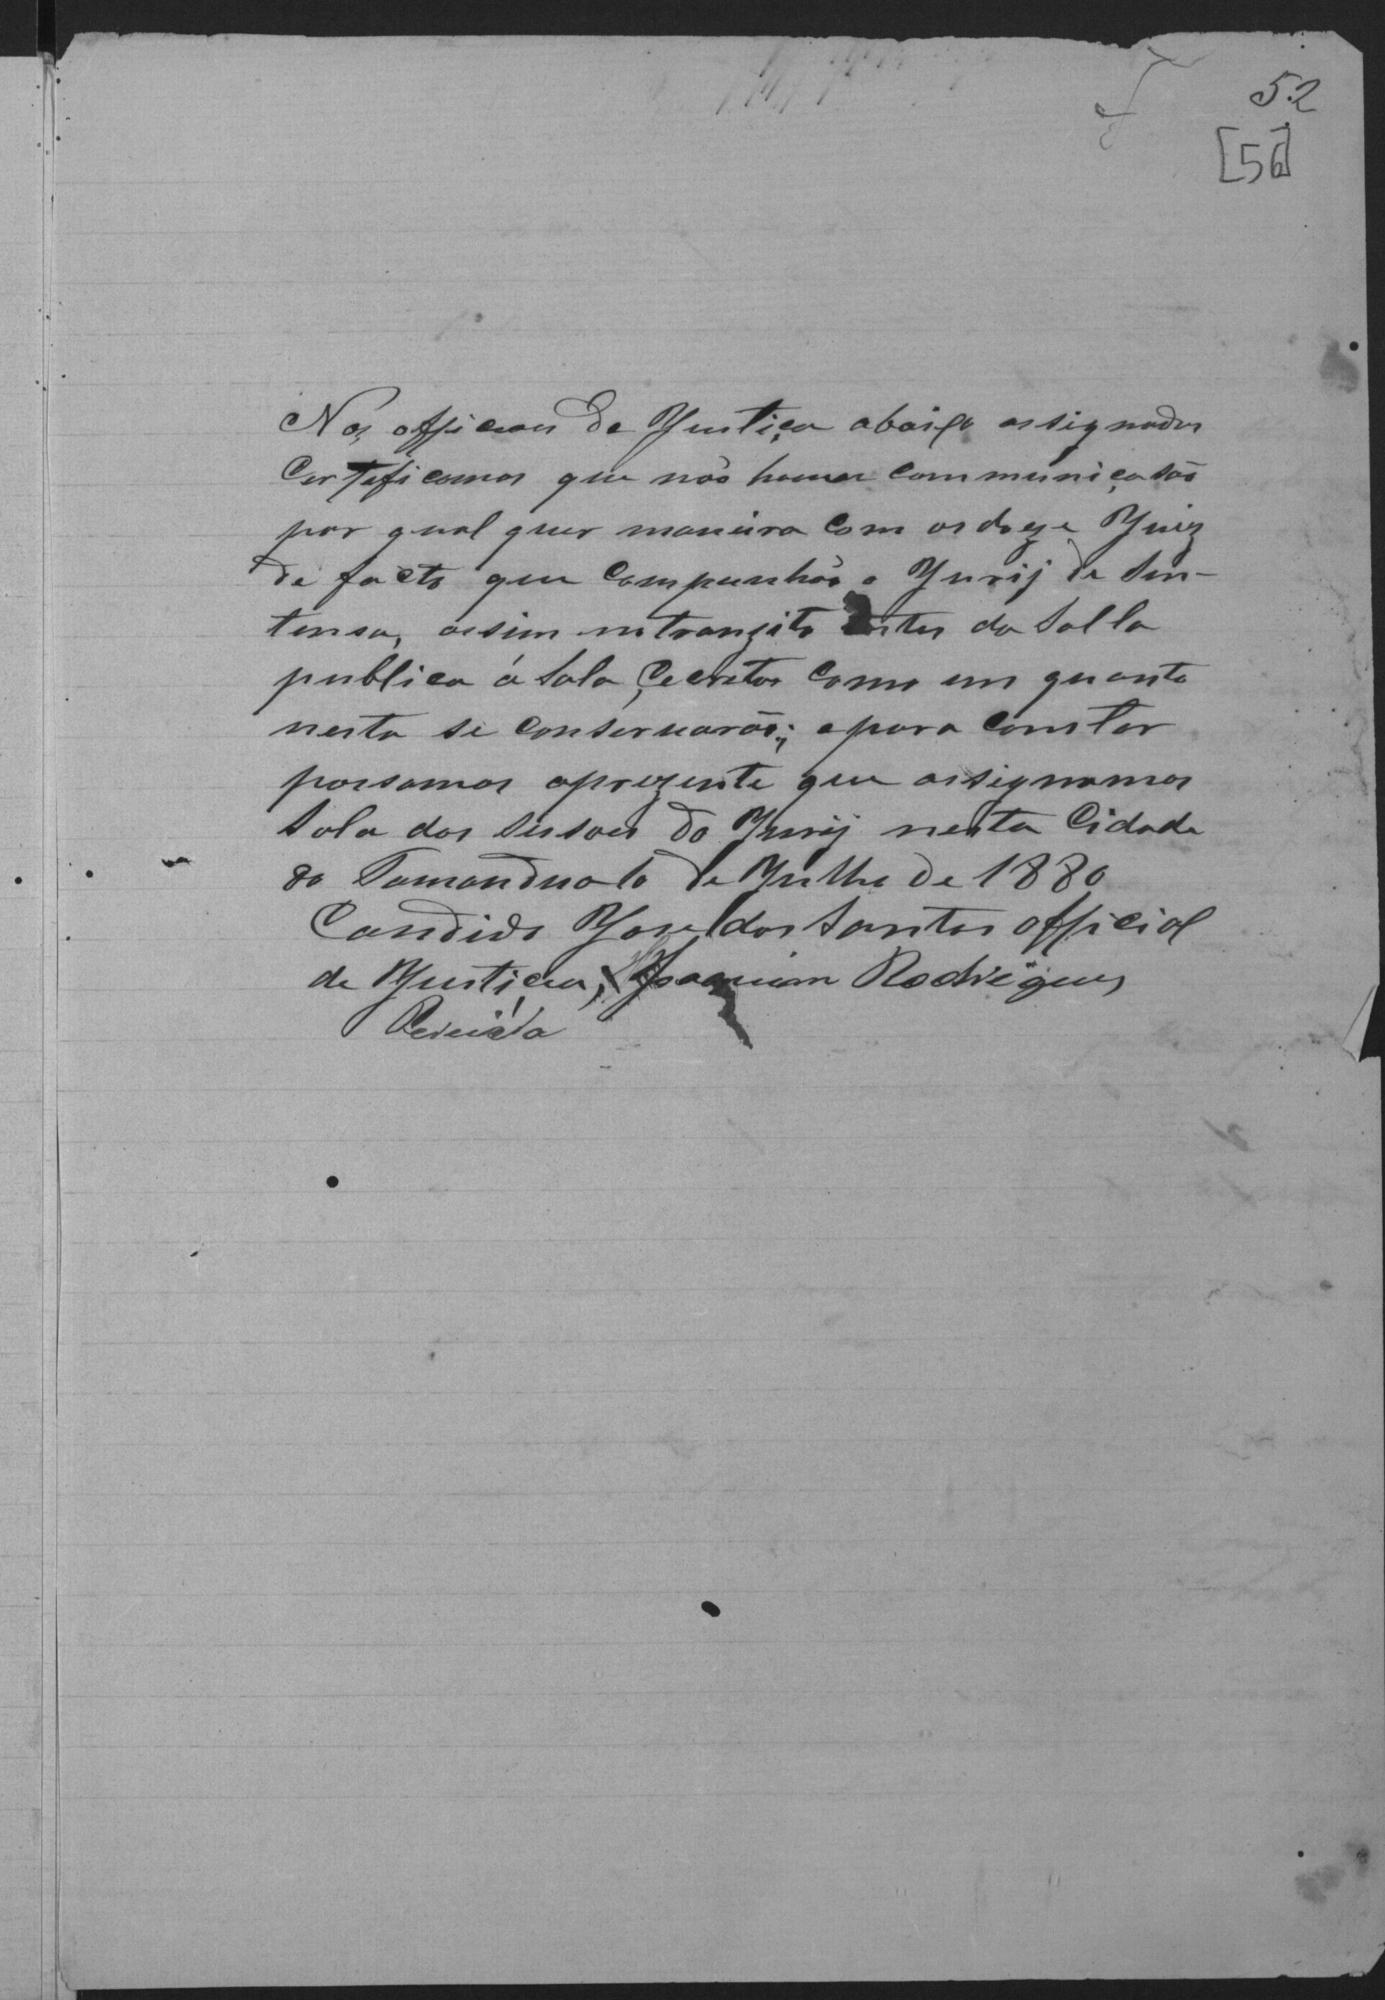 52
[56]
Nos officiaes de Justiça abaixo assignados
Certeficamos que não houve communicasão
por qual quer maneira com os doze Juiz
de facto que compunhão o Jurij de Sen-
tensa, assim no tranzito destes da Salla
publica á Sala Cecreta como em quanto
nesta se conservarão; e para constar
passamos aprezente que assignamos
Sala das sesões do Jurij nesta Cidade
do Tamanduá de Julho de 1880
Candido Jose dos Santos official
de Justiça, Joaquim Rodrigues